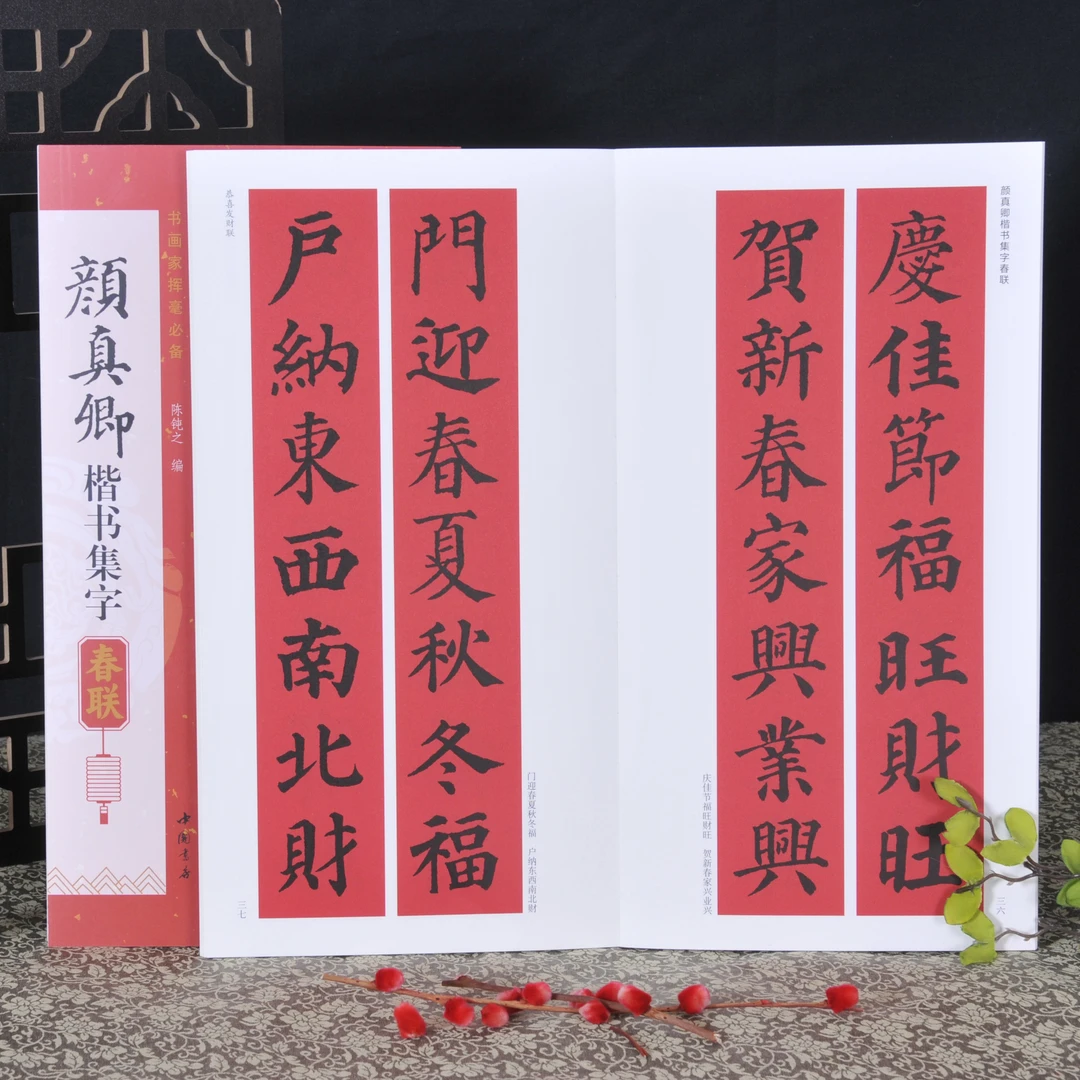 书画家挥毫必备
顏真卿
楷书集字
春联
陈钝之 编
中国书店
颜真卿楷书集字春联
慶佳節福旺財旺
賀新春家興業興
庆佳节福旺财旺 贺新春家兴业兴
三六
門迎春夏秋冬福
戶納東西南北財
门迎春夏秋冬福 户纳东西南北财
恭喜发财联
三七